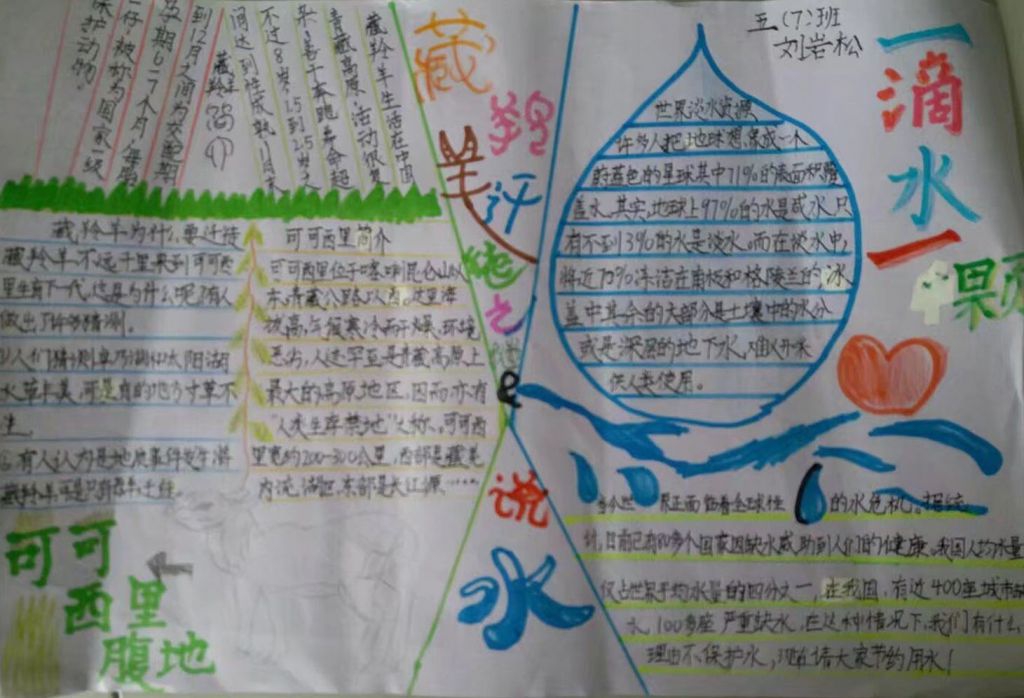 五(7)班
刘岩松
一滴水一颗
世界淡水资源
许多人把地球想象成一个
蔚蓝色的星球其中71%的表面积覆
盖水.其实地球上97%的水是咸水只
有不到3%的水是淡水.而在淡水中,
将近70%冻洁在南极和格陵兰的冰
盖中其余的大部分是土壤中的水分
或是深层的地下水,难以开采
供人类使用。
界正面临着全球性的水危机。据统
计,目前已有80多个国家因缺水威胁到人们的健康.我国人均水量
仅占世界平均水量的四分之一,在我国,有近400座城市缺
水,100多座严重缺水,在这种情况下,我们有什么
理由不保护水,现在请大家节约用水!
藏羚羊评
之
说
水
藏羚羊生活在中国
青藏高原,活动很复
杂,善于奔跑,寿命超
不过8岁,1.5到2.5岁之
间达到性成熟,11月末
到12月之间为交配期
孕期6-7个月,每胎
一仔,被称为国家一级
保护动物。
藏羚羊简介
藏羚羊为什么要迁徙
藏羚羊不远千里来到可可西
里生育下一代.这是为什么呢?有人
做出了许多猜测.
①人们猜测卓乃湖和太阳湖
水草丰美,可是有的地方寸草不
生.
②有人认为是地质事件发生将
可可西里简介
可可西里位于喀喇昆仑山以
东,青藏公路以西,这里海
拔高,气候寒冷而干燥,环境
恶劣,人迹罕至是青藏高原上
最大的高原地区,因而亦有
"人类生存禁地"之称.可可西
里宽约200-300公里,西部是藏北
内流湖区,东部是长江源……
可可
西里
腹地